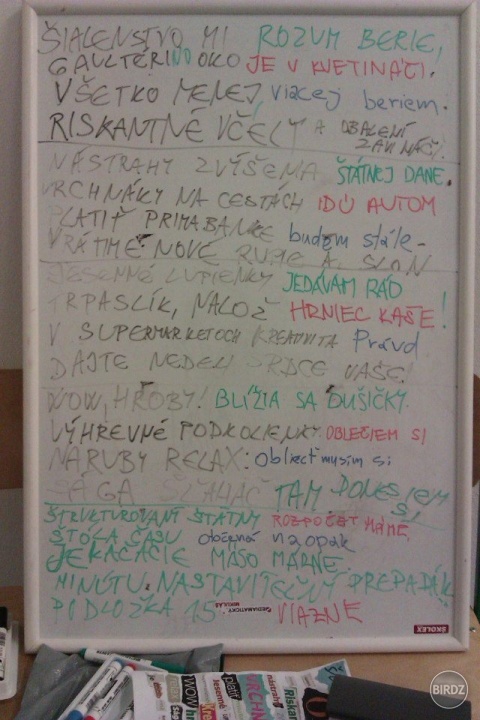 ŠIALENSTVO MI ROZUM BERIE,
GAULTÉRINO OKO JE V KVETINÁČI.
VŠETKO MENEJ viacej beriem.
RISKANTNÉ VČELY A OBALENÍ ZAVINÁČI.
NÁSTRAHY ZVÝŠENIA ŠTÁTNEJ DANE.
VRCHNÁKY NA CESTÁCH IDÚ AUTOM
PLATIŤ PRIMABANKE budem stále -
VRÁTIME NOVÉ RUPIE A SLON
JESENNÉ LUPIENKY JEDÁVAM RÁD
TRPASLÍK, NALOŽ HRNIEC KAŠE!
V SUPERMARKETOCH KREATIVITA Právd
DAJTE NEDELI SRDCE VAŠE!
WOW, HROBY! BLÍŽIA SA DUŠIČKY.
VÝHREVNÉ PODKOLIENKY OBLEČIEM SI
NARUBY RELAX: obliecť musím si
SÁGA TAM DONESIEM SI
ŠTRUKTUROVANÝ ŠTÁTNY ROZPOČET MÁME
STOLA ČASU občerná naopak
JE KAČACIE MÄSO MÁRNE.
MINÚTU. NASTAVITEĽNÝ PREPADÁK
PODLOŽKA 15 VIAZNE
SKOLEX
WOW
platiť
Jesenné
VRCHN
nástrah
Riskan
BIRDZ